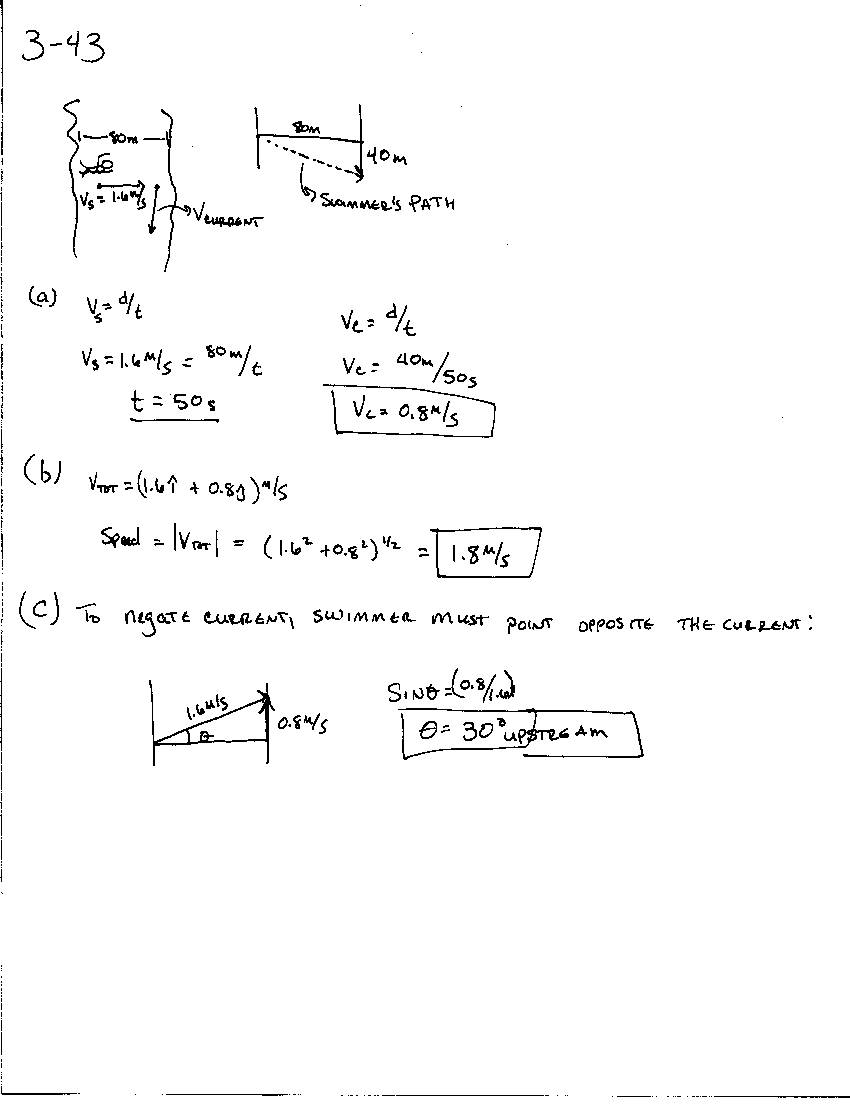 3-43
80m
80m
40m
Vs = 1.6 M/s
VCURRENT
SWIMMER'S PATH
(a) Vs = d/t
Vc = d/t
Vs = 1.6 M/s = 80m/t
Vc = 40m/50s
t = 50s
Vc = 0.8 M/s
(b) VTOT = (1.6î + 0.8ĵ) M/s
Speed = |VTOT| = (1.6² + 0.8²)^1/2 = 1.8 M/s
(C) To negate current, swimmer must point opposite the current:
1.6 M/s
θ
0.8 M/s
SINθ = (0.8/1.6)
θ = 30° UPSTREAM